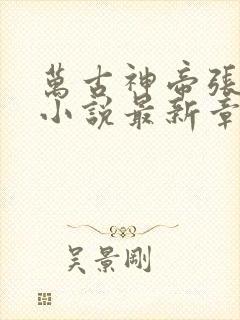 萬古神帝張
小說最新章
吳景剛